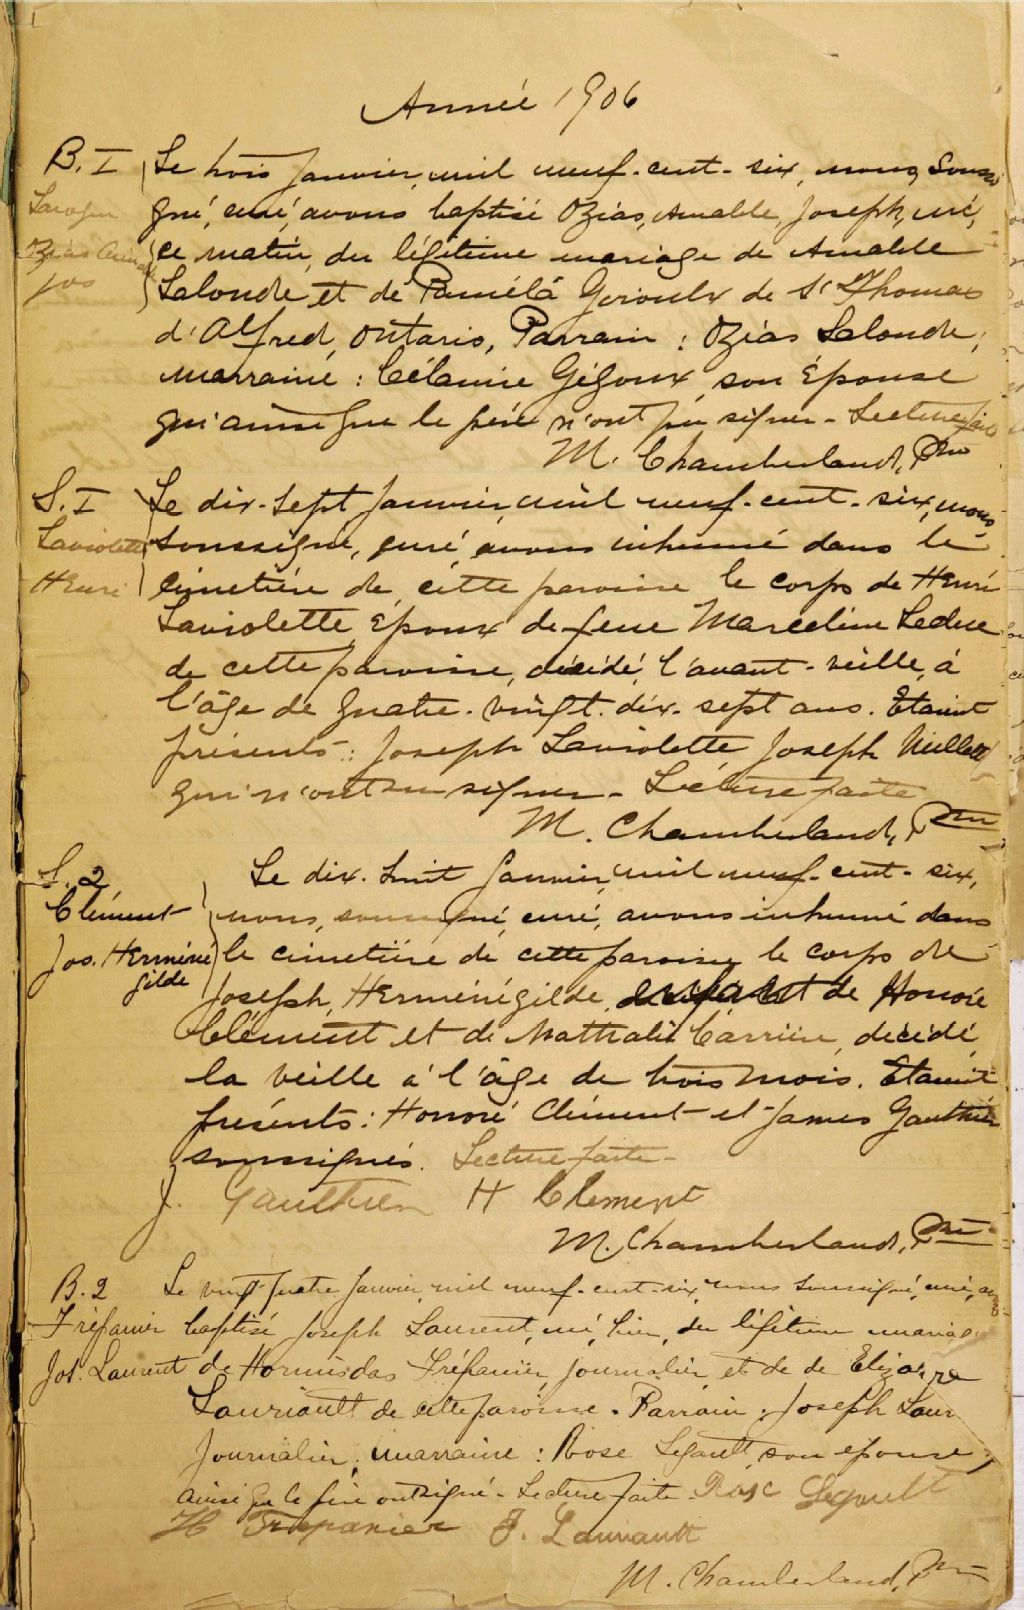 Année 1906
B. I
Le trois Janvier, mil neuf-cent-six, nous, Soussi
gné, curé, avons baptisé Ozias, Amable, Joseph, né,
Ozias
ce matin, du légitime mariage de Amable
Jos
Lalonde et de Paméla Giroulx de St Thomas
d'Alfred, Ontario, Parrain : Ozias Lalonde,
marraine : Célanire Gégoux, son épouse
qui ainsi que le père n'ont pu signer - Lecture faite
M. Chamberland, Ptre
S. I
Le dix-sept Janvier, mil neuf-cent-six, nous
Laviolette
soussigné, curé, avons inhumé dans le
Henri
cimetière de cette paroisse le corps de Henri
Laviolette, époux de feue Marceline Leduc
de cette paroisse, décédé, l'avant-veille, à
l'âge de quatre-vingt-dix-sept ans. Etaient
présents : Joseph Laviolette Joseph
qui n'ont su signer - Lecture faite
M. Chamberland, Ptre
S. 2
Le dix-huit Janvier, mil neuf-cent-six,
Clément
nous, soussigné, curé, avons inhumé dans
Jos. Herméné
gilde
le cimetière de cette paroisse le corps de
Joseph, Herménégilde, enfant de Honoré
Clément et de Nathalie Carrière, décédé,
la veille à l'âge de trois mois. Etaient
présents : Honoré Clément et James Gauthier
soussignés. Lecture faite -
J. Gauthier H Clement
M. Chamberland, Ptre
B. 2
Le vingt-quatre Janvier, mil neuf-cent-six, nous soussigné, curé,
Trépanier
baptisé Joseph Laurent, né, hier, du légitime mariage
Jos. Laurent
de Hormisdas Trépanier, journalier, et de de
Lauriault de cette paroisse - Parrain : Joseph Laur
journalier, marraine : Rose Legault, son épouse,
ainsi que le père ont signé - Lecture faite - Rose Legault
H Trepanier J. Lauriault
M. Chamberland, Ptre